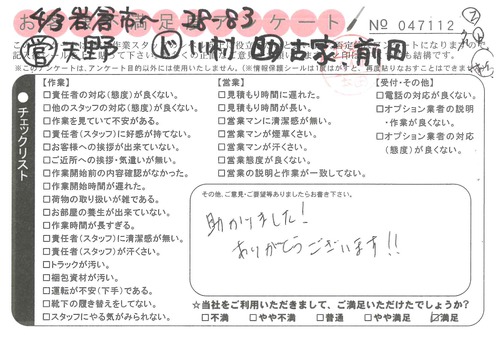 4/3 岩倉市～ 28-83
お 満足度アンケート
No 047112
営 天野 ド 川村 助 古家 前田
※このアンケートは、アンケート目的以外には使用いたしません。
チェックリスト
【作業】
□責任者の対応(態度)が良くない。
□他のスタッフの対応(態度)が良くない。
□作業を見ていて不安がある。
□責任者(スタッフ)に好感が持てない。
□お客様への挨拶が出来ていない。
□ご近所への挨拶・気遣いが無い。
□作業開始前の内容確認がなかった。
□作業開始時間が遅れた。
□荷物の取り扱いが雑である。
□お部屋の養生が出来ていない。
□作業時間が長すぎる。
□責任者(スタッフ)に清潔感が無い。
□責任者(スタッフ)が汗くさい。
□トラックが汚い。
□梱包資材が汚い。
□運転が不安(下手)である。
□靴下の履き替えをしてない。
□スタッフにやる気がみられない。
【営業】
□見積もり時間に遅れた。
□見積もり時間が長い。
□営業マンに清潔感が無い。
□営業マンが煙草くさい。
□営業マンが汗くさい。
□営業態度が良くない。
□営業の説明と作業が一致してない。
【受付・その他】
□電話の対応が良くない。
□オプション業者の説明・作業が良くない。
□オプション業者の対応(態度)が良くない。
その他、ご意見・ご要望等ありましたらお書き下さい。
助かりました!
ありがとうございます!!
☆当社をご利用いただきまして、ご満足いただけたでしょうか?
□不満 □やや不満 □普通 □やや満足 ☑満足